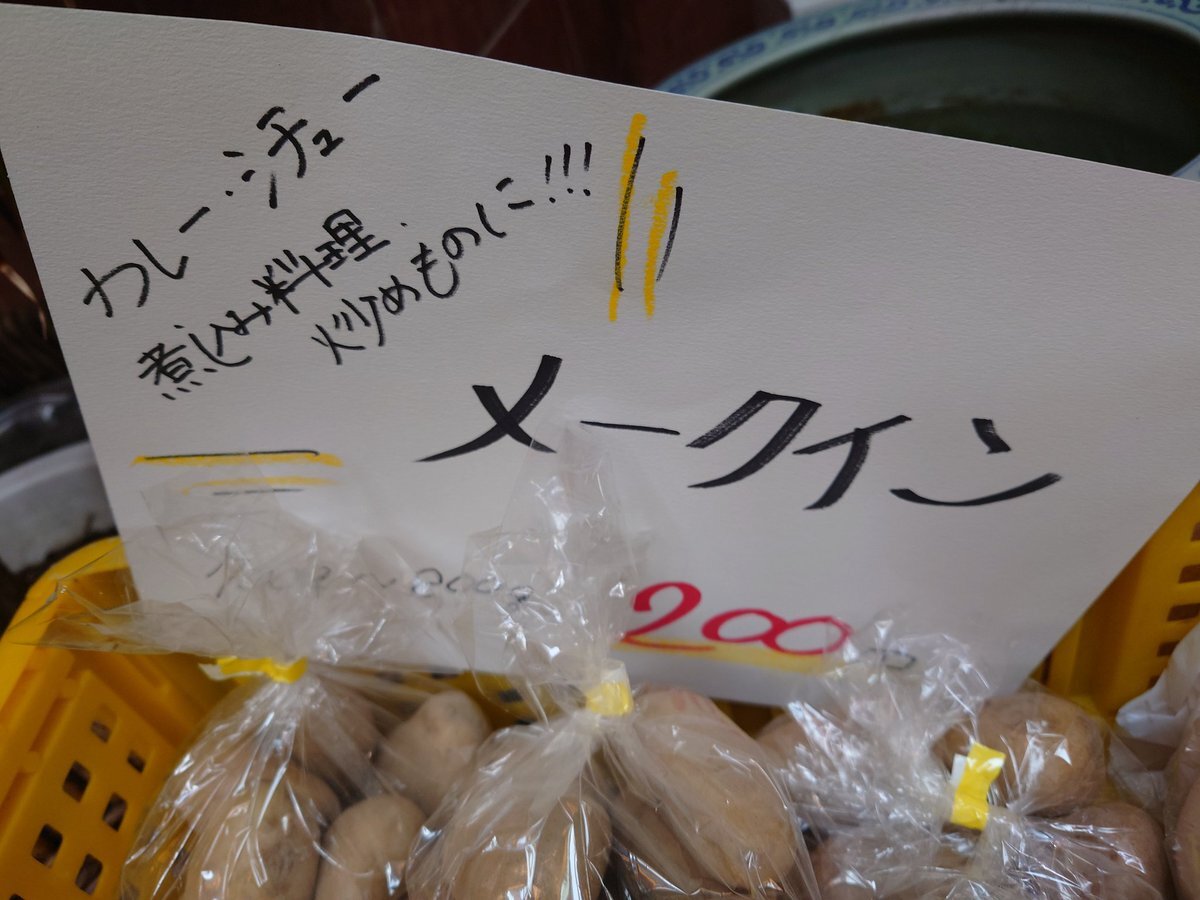 カレー・シチュー
煮込み料理
炒めものに!!!
メークイン
200